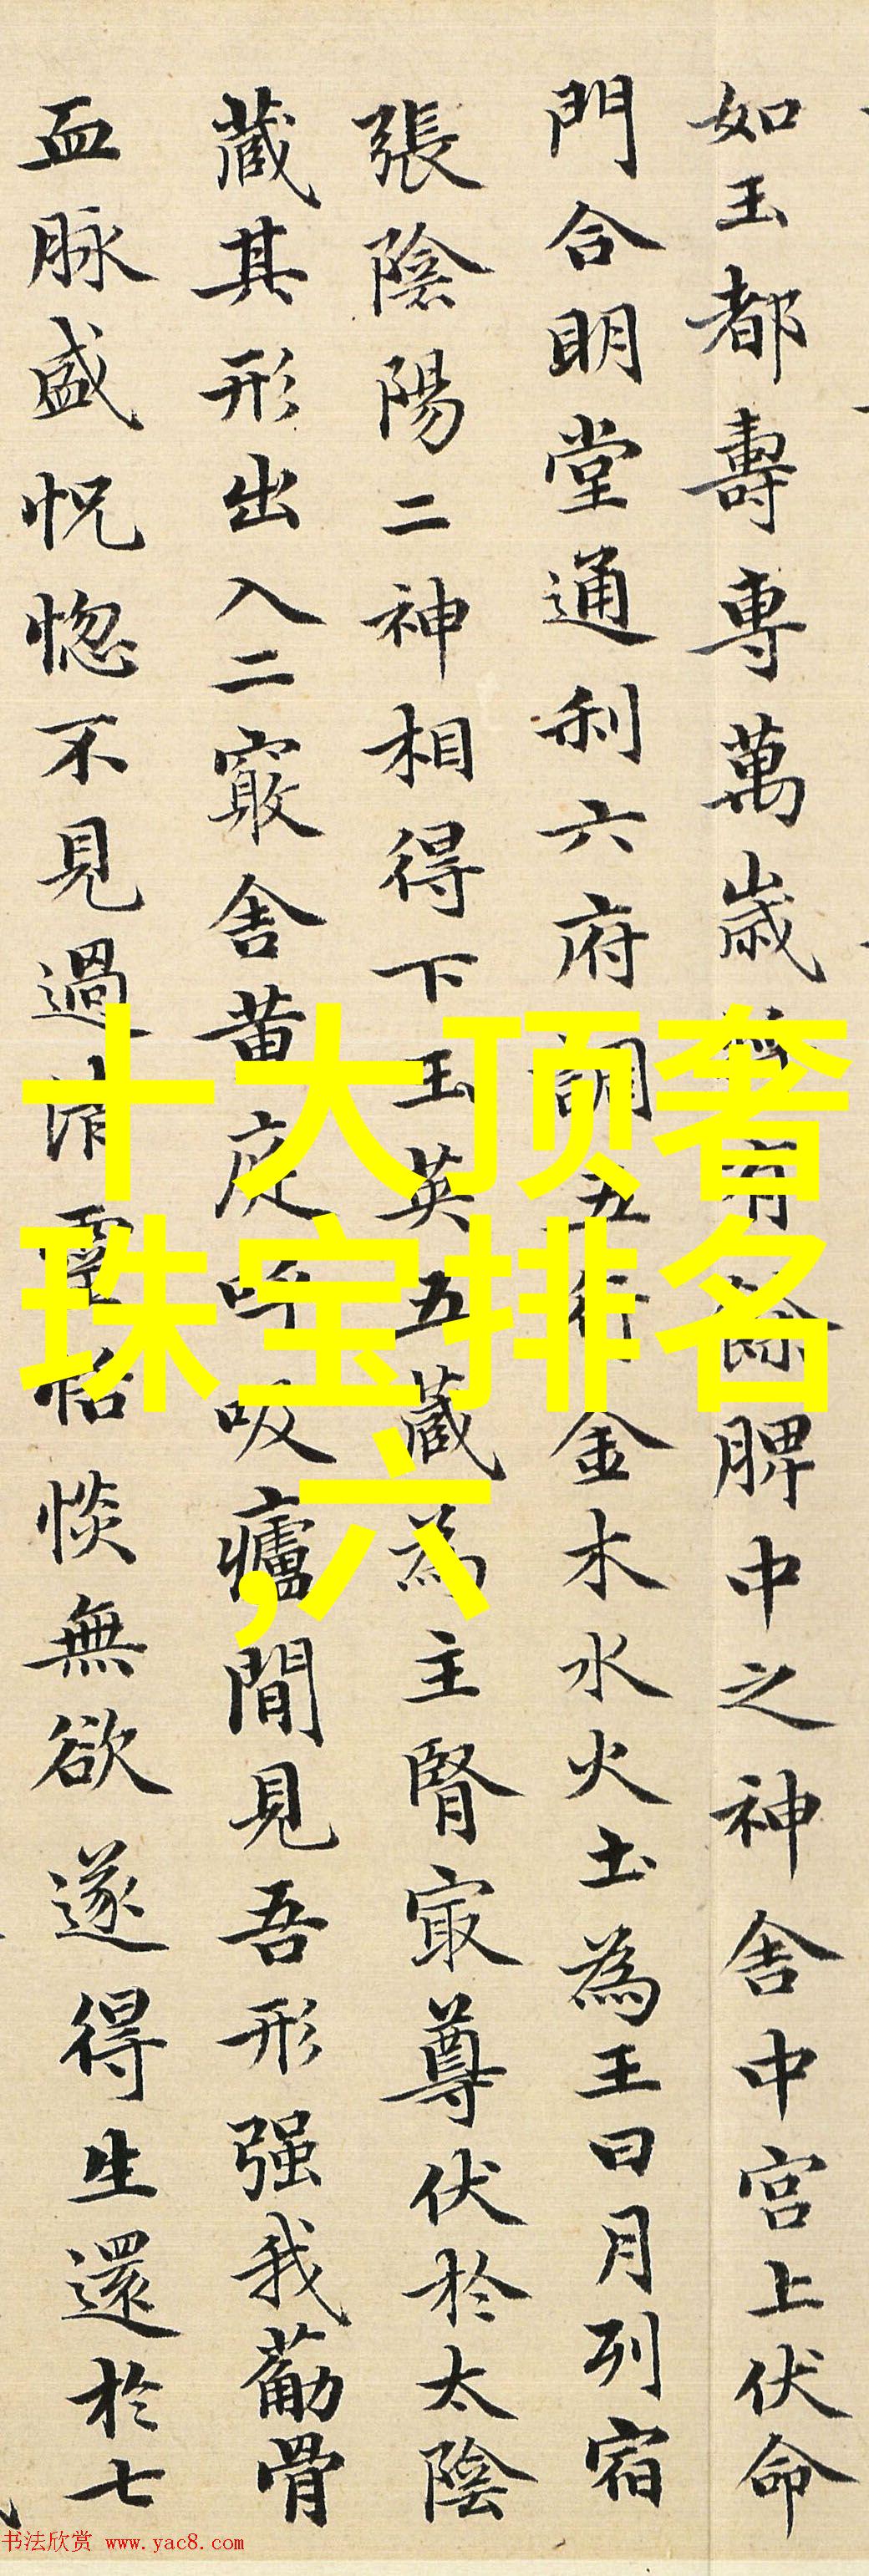 如玉都壽專萬歲有餘脾中之神舍中宮上伏命
門合明堂通利六府調五行金木水火土為王日月列宿
張陰陽二神相得下玉英五藏為主腎寂尊伏於太陰
藏其形出入二竅舍黃庭呼吸廬間見吾形强我筋骨
血脉盛怳惚不見過清靈恬惔無欲遂得生還於七
十大顶奢
珠宝排名
,六
书法欣赏 www.yac8.com